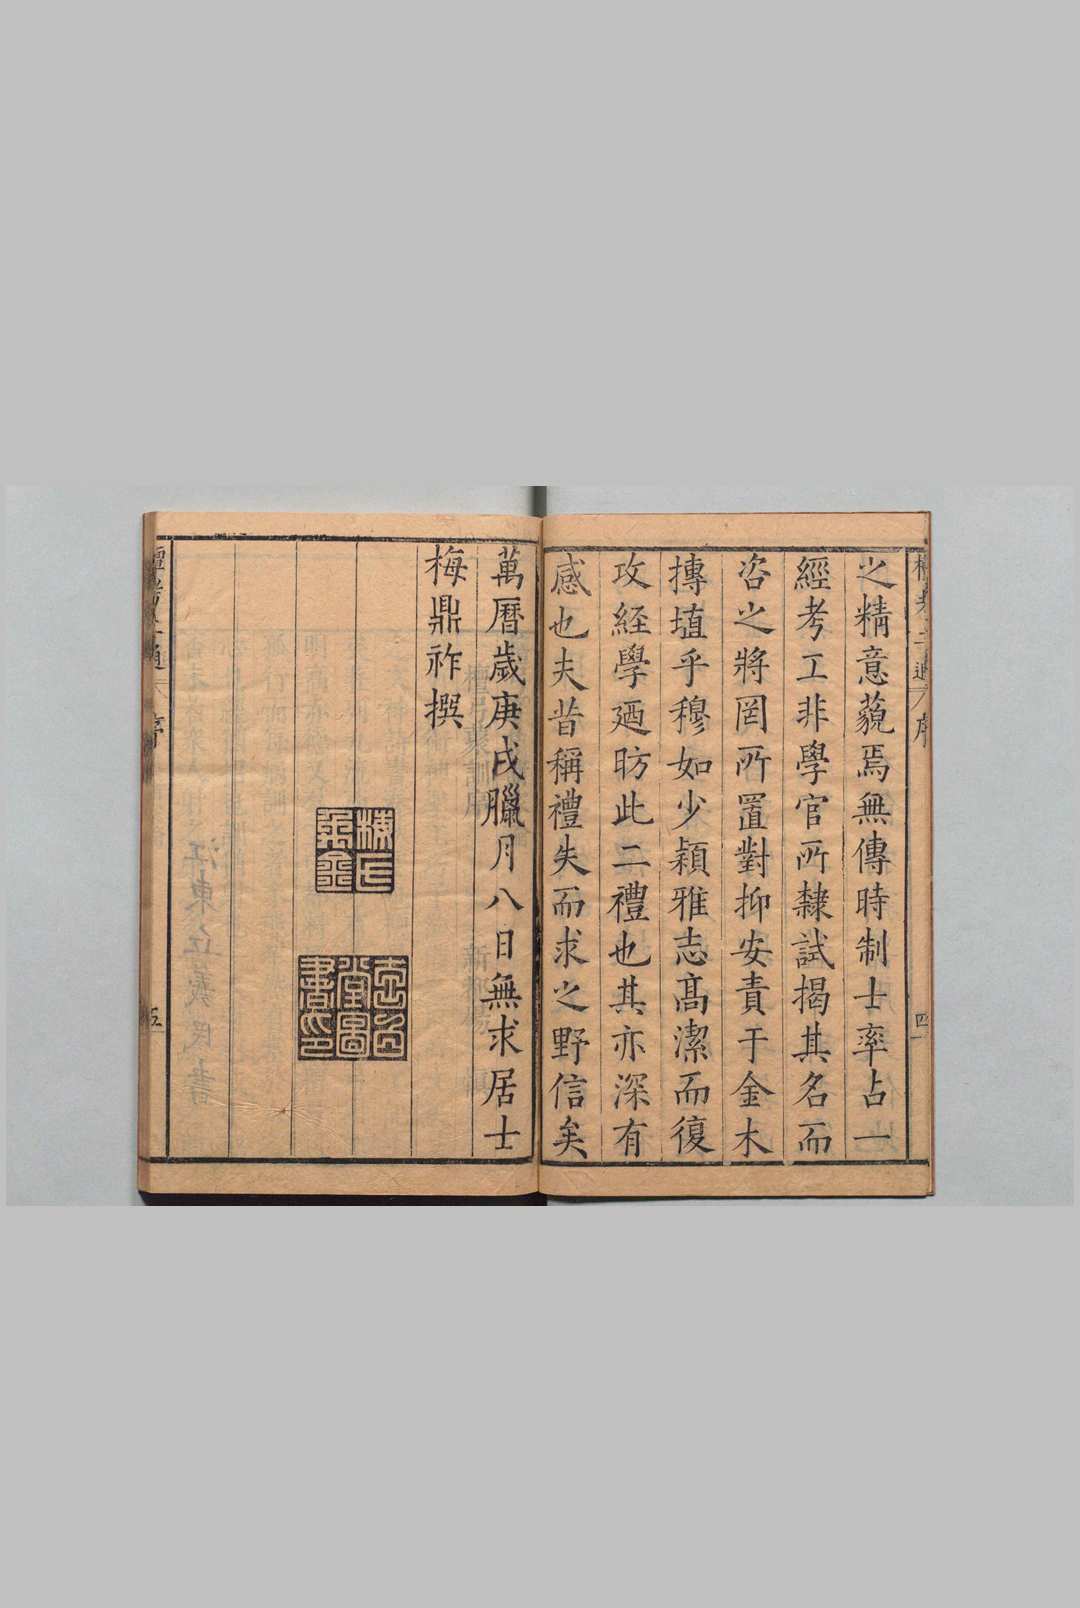 之精意藐焉無傳時制士率占一
經考工非學官所隸試揭其名而
咨之將罔所置對抑安責于金木
摶埴乎穆如少穎雅志高潔而復
攻經學廼昉此二禮也其亦深有
感也夫昔稱禮失而求之野信矣
四
萬曆歲庚戌臘月八日無求居士
梅鼎祚撰
序
五